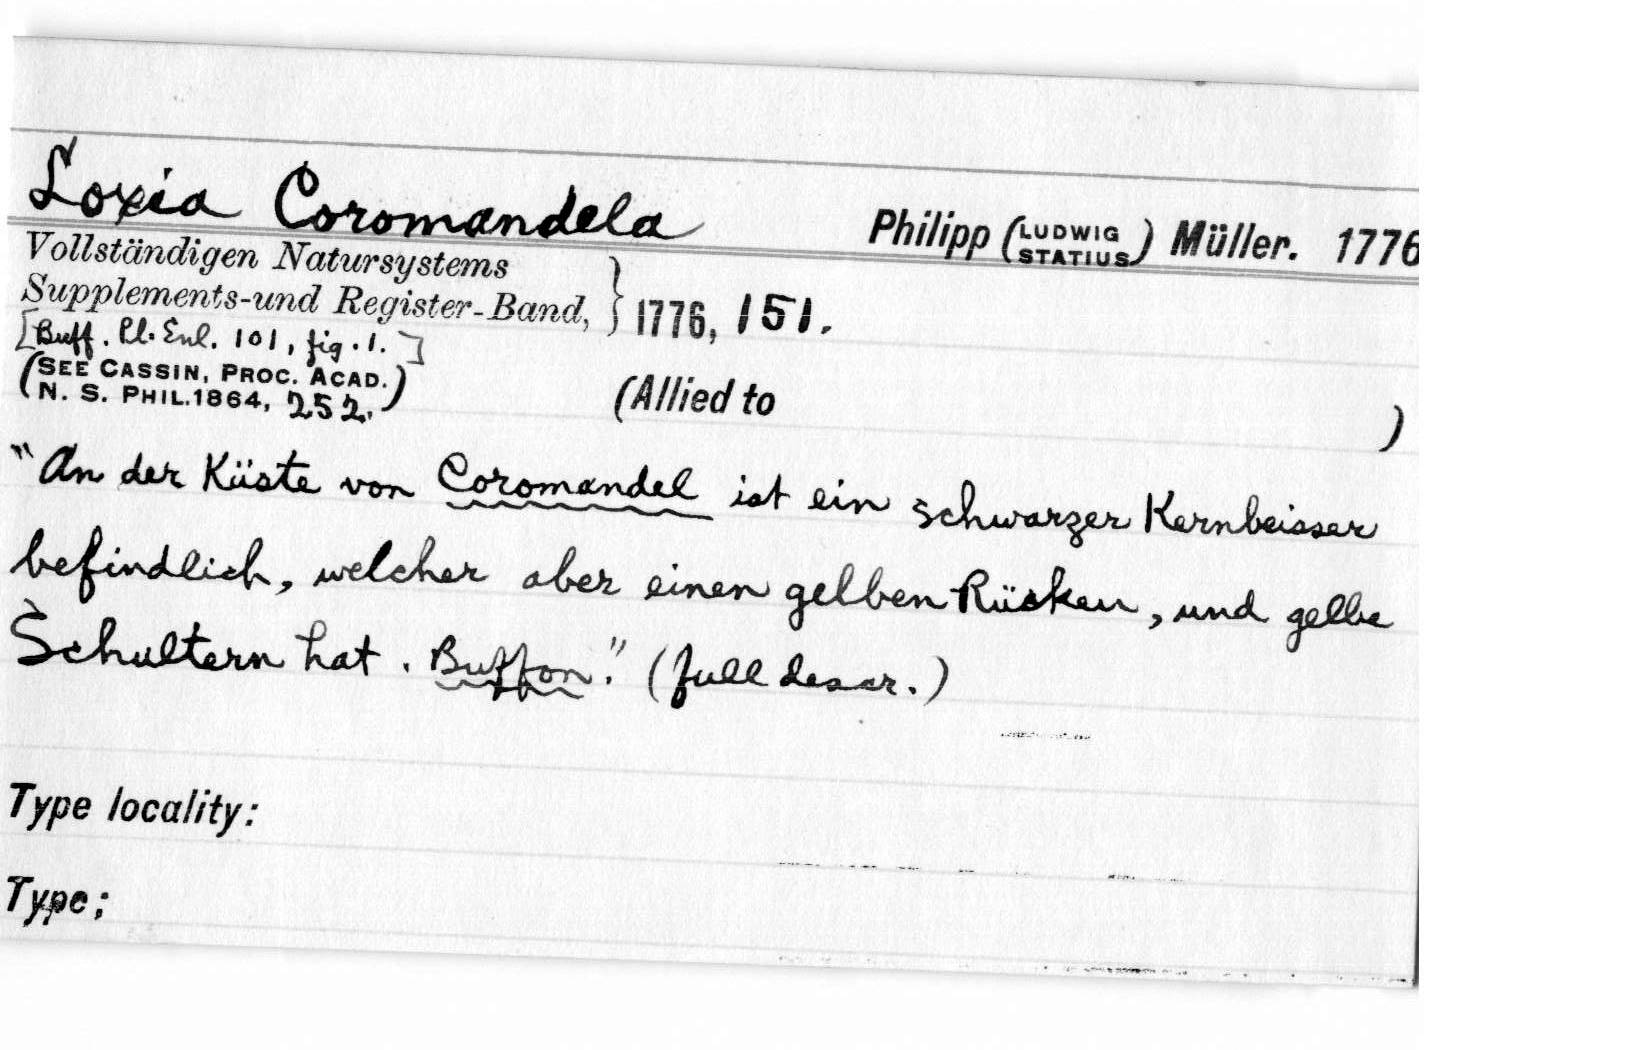 Loxia Coromandela Philipp (LUDWIG STATIUS) Müller. 1776
Vollständigen Natursystems
Supplements-und Register-Band, } 1776, 151.
[Buff. Pl. Enl. 101, fig. 1.]
(SEE CASSIN, PROC. ACAD.
N. S. PHIL. 1864, 252.)
(Allied to )
"An der Küste von Coromandel ist ein schwarzer Kernbeisser
befindlich, welcher aber einen gelben Rücken, und gelbe
Schultern hat. Buffon." (full descr.)
Type locality:
Type;